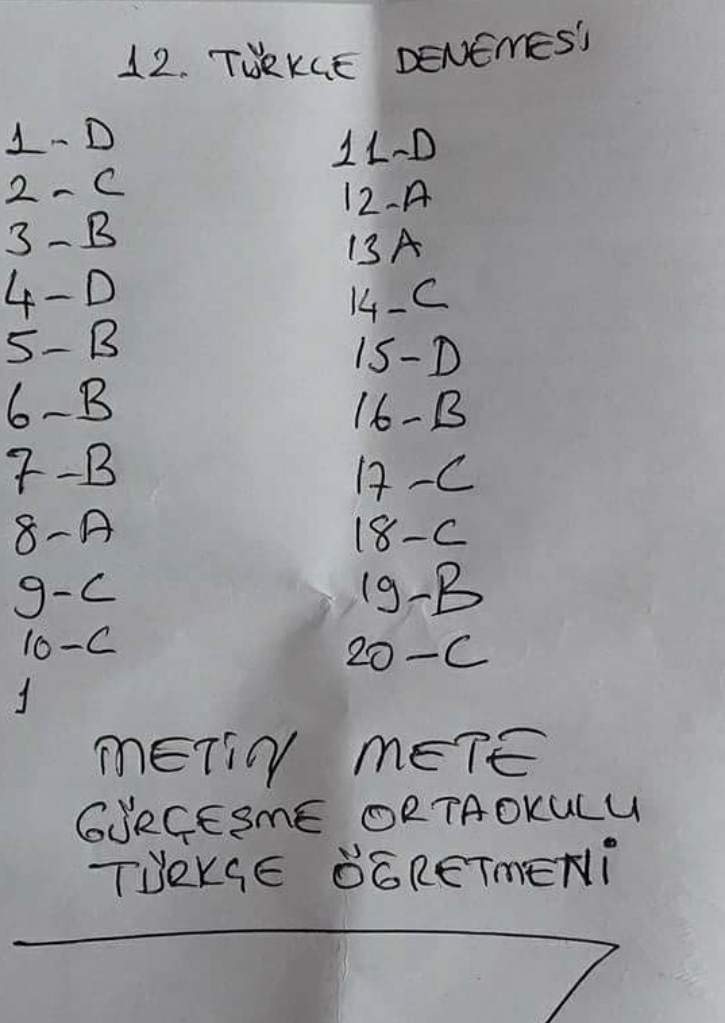 12. TÜRKÇE DENEMESİ
1-D
2-C
3-B
4-D
5-B
6-B
7-B
8-A
9-C
10-C
1
11-D
12-A
13A
14-C
15-D
16-B
17-C
18-C
19-B
20-C
METİN METE
GÜRÇEŞME ORTAOKULU
TÜRKÇE ÖĞRETMENİ